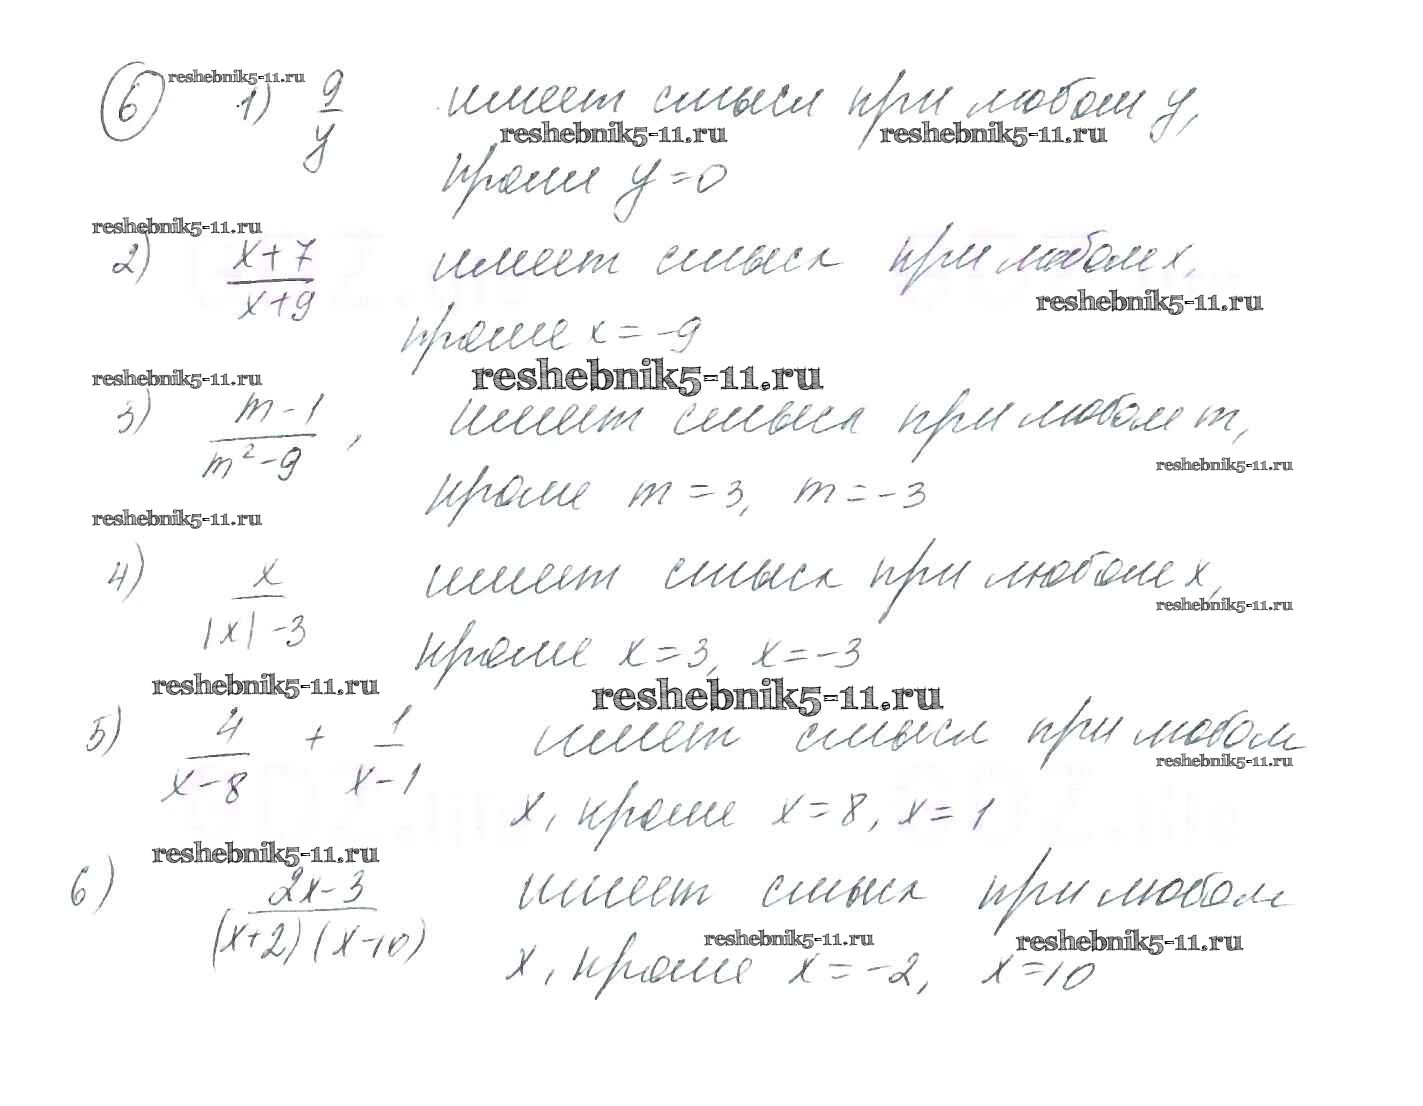 reshebnik5-11.ru
6 1) 9/y имеет смысл при любом y,
reshebnik5-11.ru reshebnik5-11.ru
кроме y = 0
reshebnik5-11.ru
2) x+7/x+9 имеет смысл при любом x,
reshebnik5-11.ru
кроме x = -9
reshebnik5-11.ru reshebnik5-11.ru
3) m-1/m²-9, имеет смысл при любом m,
reshebnik5-11.ru
кроме m = 3, m = -3
reshebnik5-11.ru
4) x/|x|-3 имеет смысл при любом x,
reshebnik5-11.ru
кроме x = 3, x = -3
reshebnik5-11.ru reshebnik5-11.ru
5) 4/x-8 + 1/x-1 имеет смысл при любом
reshebnik5-11.ru
x, кроме x = 8, x = 1
reshebnik5-11.ru
6) 2x-3/(x+2)(x-10) имеет смысл при любом
reshebnik5-11.ru reshebnik5-11.ru
x, кроме x = -2, x = 10